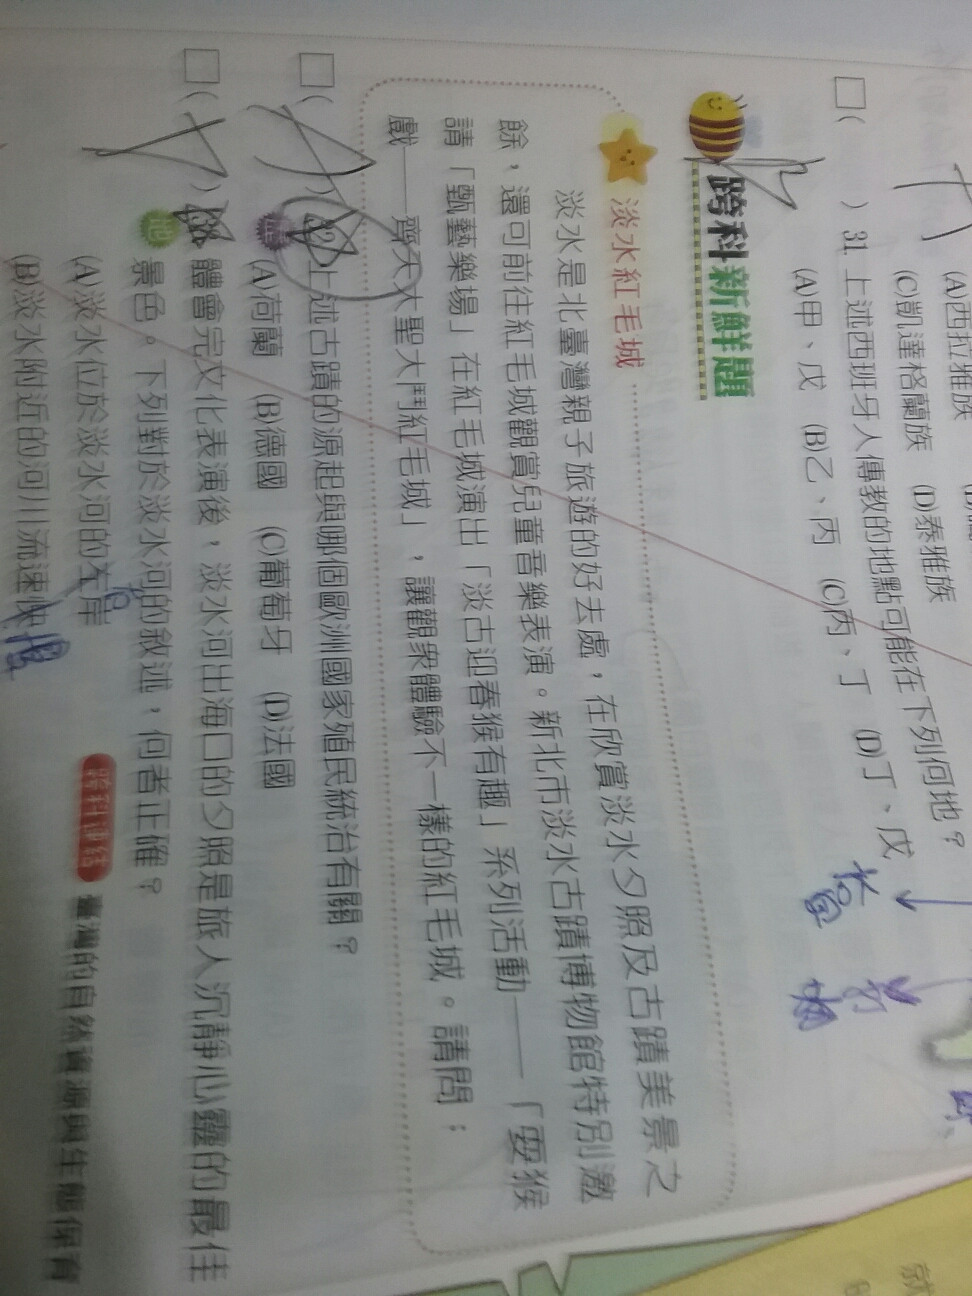 (A)西拉雅族
(C)凱達格蘭族 (D)泰雅族
31 上述西班牙人傳教的地點可能在下列何地？
(A)甲、戊 (B)乙、丙 (C)丙、丁 (D)丁、戊
跨科新鮮題
淡水紅毛城
淡水是北臺灣親子旅遊的好去處，在欣賞淡水夕照及古蹟美景之
餘，還可前往紅毛城觀賞兒童音樂表演。新北市淡水古蹟博物館特別邀
請「甄藝樂場」在紅毛城演出「淡古迎春猴有趣」系列活動——「耍猴
戲——齊天大聖大鬥紅毛城」，讓觀眾體驗不一樣的紅毛城。請問：
32 上述古蹟的源起與哪個歐洲國家殖民統治有關？
(A)荷蘭 (B)德國 (C)葡萄牙 (D)法國
體會完文化表演後，淡水河出海口的夕照是旅人沉靜心靈的最佳
地 景色。下列對於淡水河的敘述，何者正確？
(A)淡水位於淡水河的左岸
(B)淡水附近的河川流速快 慢
跨科連結 臺灣的自然資源與生態保育
就